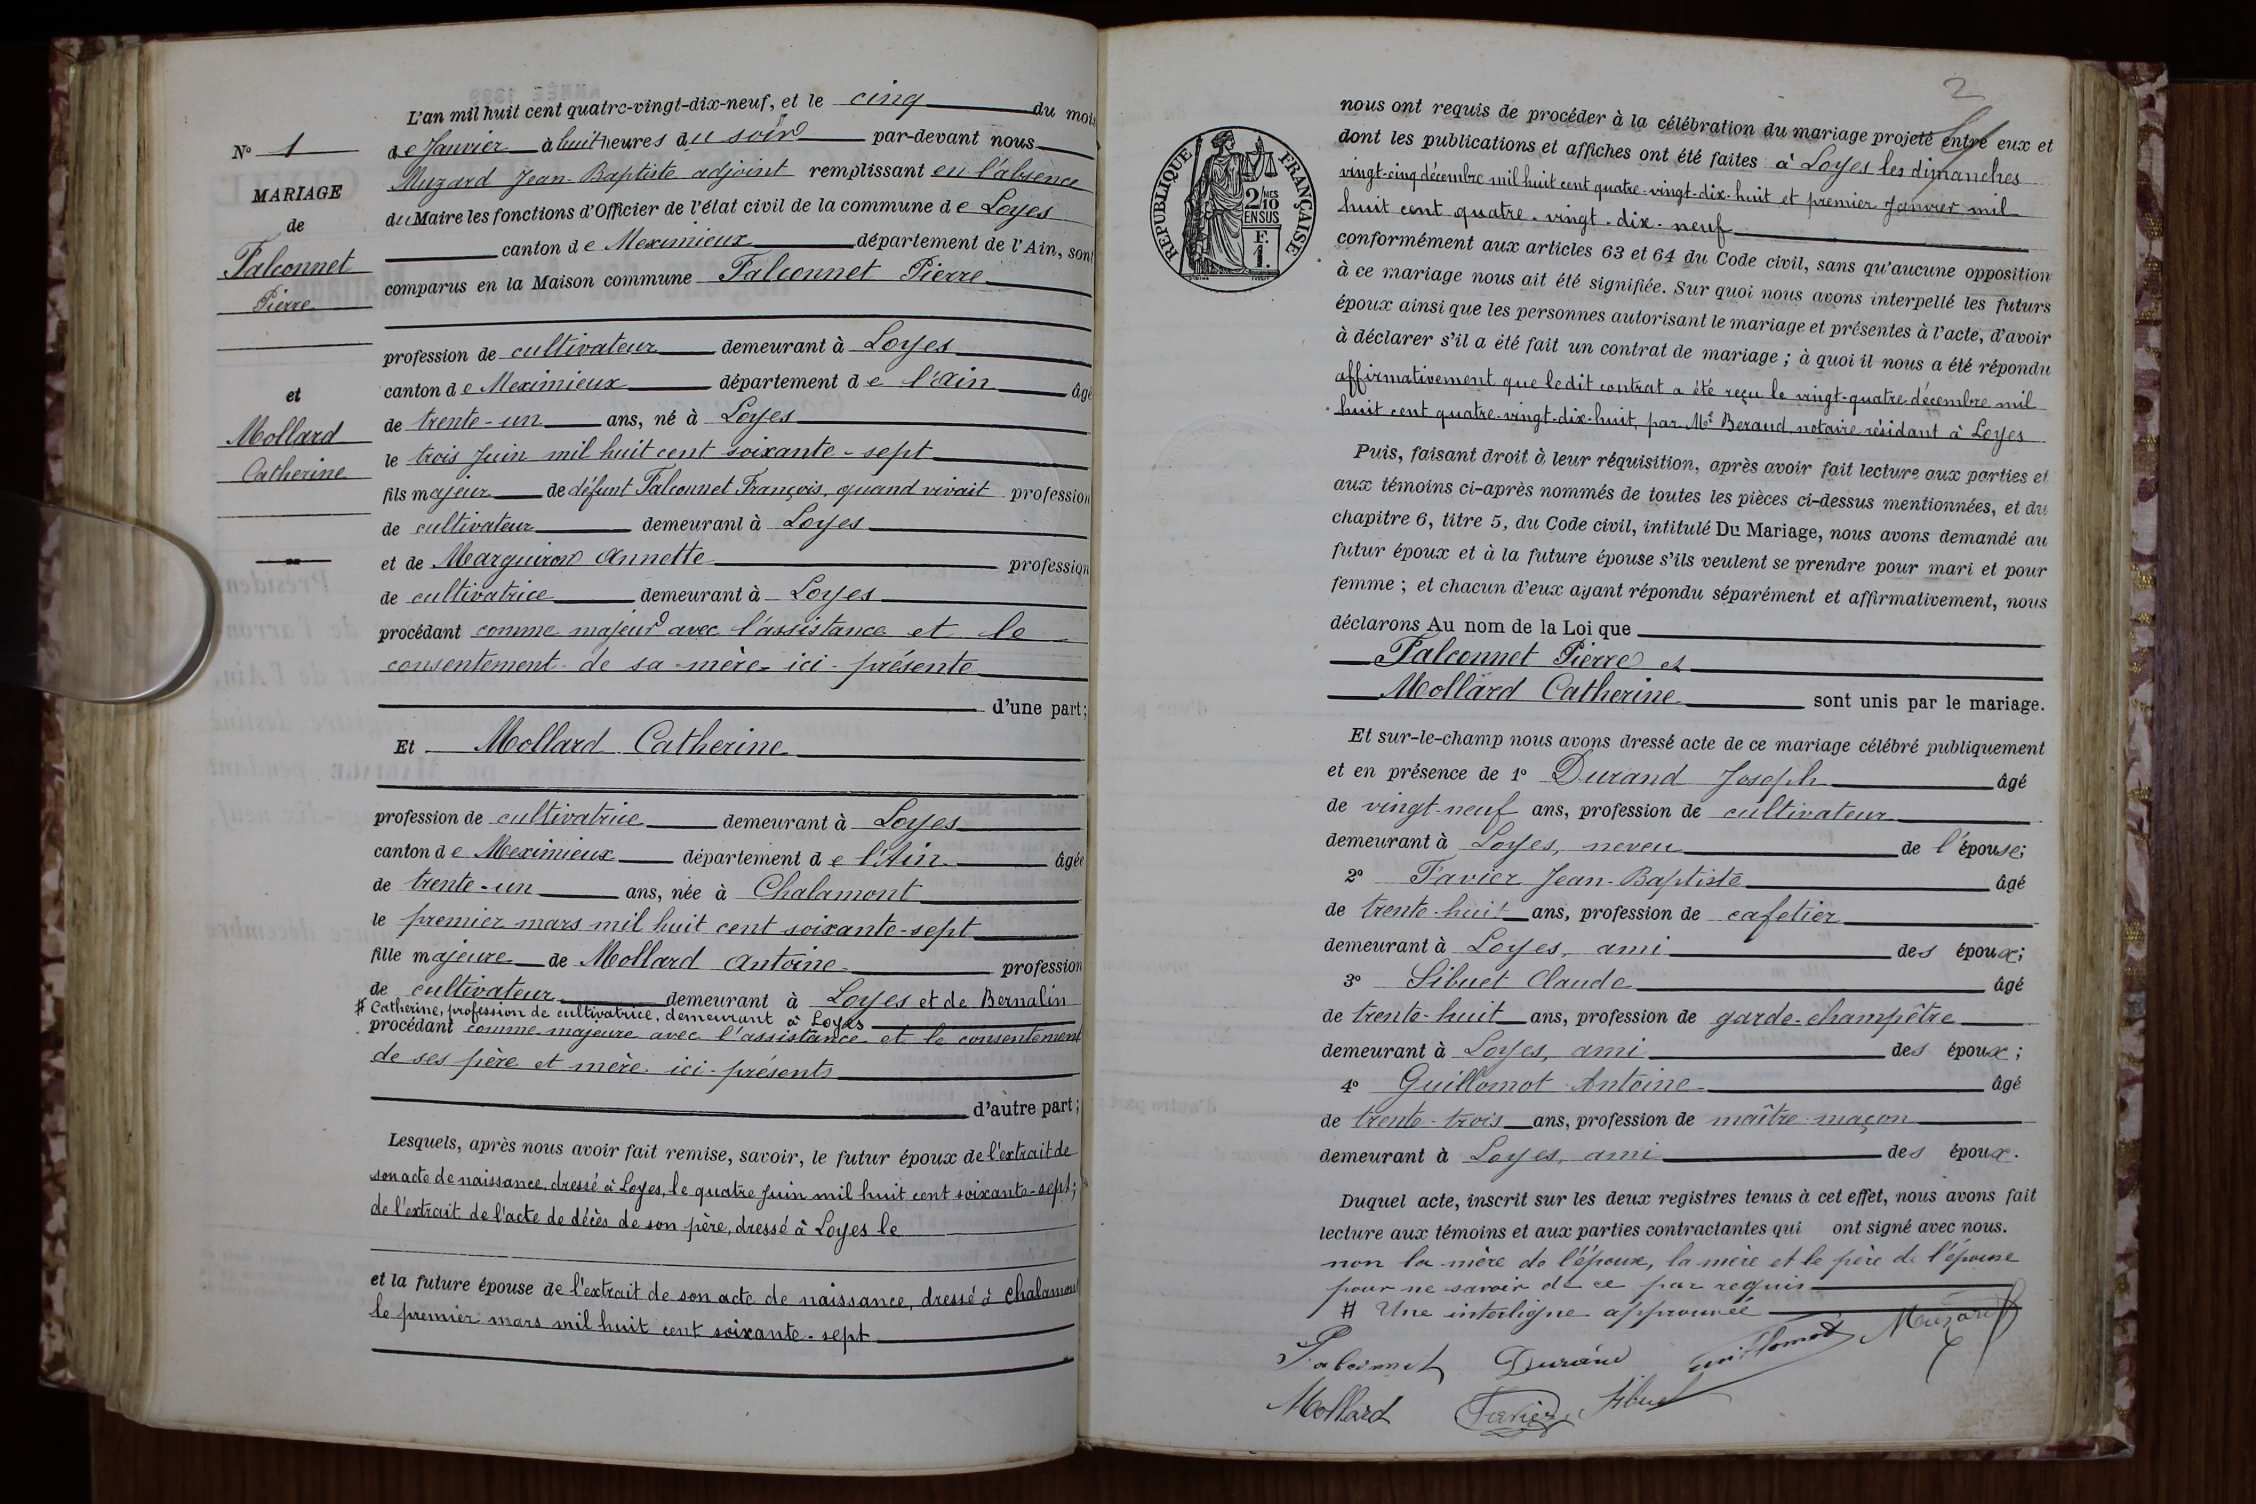 N° 1
MARIAGE
de
Falconnet
Pierre
et
Mollard
Catherine
L'an mil huit cent quatre-vingt-dix-neuf, et le cinq du mois
de Janvier à huit heures du soir par-devant nous
Muzard Jean-Baptiste adjoint remplissant en l'absence
du Maire les fonctions d'Officier de l'état civil de la commune de Loyes
canton de Meximieux département de l'Ain, sont
comparus en la Maison commune Falconnet Pierre
profession de cultivateur demeurant à Loyes
canton de Meximieux département de l'Ain âgé
de trente-un ans, né à Loyes
le trois Juin mil huit cent soixante-sept
fils majeur de défunt Falconnet François, quand vivait profession
de cultivateur demeurant à Loyes
et de Marguiron Annette profession
de cultivatrice demeurant à Loyes
procédant comme majeur avec l'assistance et le
consentement de sa mère ici présente
d'une part;
Et Mollard Catherine
profession de cultivatrice demeurant à Loyes
canton de Meximieux département de l'Ain âgée
de trente-un ans, née à Chalamont
le premier mars mil huit cent soixante-sept
fille majeure de Mollard Antoine profession
de cultivateur demeurant à Loyes et de Bernalin
# Catherine, profession de cultivatrice, demeurant à Loyes
procédant comme majeure avec l'assistance et le consentement
de ses père et mère ici présents
d'autre part;
Lesquels, après nous avoir fait remise, savoir, le futur époux de l'extrait de
son acte de naissance, dressé à Loyes, le quatre Juin mil huit cent soixante-sept;
de l'extrait de l'acte de décès de son père, dressé à Loyes le
et la future épouse de l'extrait de son acte de naissance, dressé à Chalamont
le premier mars mil huit cent soixante-sept
2
RÉPUBLIQUE FRANÇAISE
2/10
EN SUS
F.
1.
nous ont requis de procéder à la célébration du mariage projeté entre eux et
dont les publications et affiches ont été faites à Loyes les dimanches
vingt-cinq décembre mil huit cent quatre-vingt-dix-huit et premier Janvier mil
huit cent quatre-vingt-dix-neuf
conformément aux articles 63 et 64 du Code civil, sans qu'aucune opposition
à ce mariage nous ait été signifiée. Sur quoi nous avons interpellé les futurs
époux ainsi que les personnes autorisant le mariage et présentes à l'acte, d'avoir
à déclarer s'il a été fait un contrat de mariage; à quoi il nous a été répondu
affirmativement que ledit contrat a été reçu le vingt-quatre décembre mil
huit cent quatre-vingt-dix-huit, par Me Beraud, notaire résidant à Loyes
Puis, faisant droit à leur réquisition, après avoir fait lecture aux parties et
aux témoins ci-après nommés de toutes les pièces ci-dessus mentionnées, et du
chapitre 6, titre 5, du Code civil, intitulé Du Mariage, nous avons demandé au
futur époux et à la future épouse s'ils veulent se prendre pour mari et pour
femme; et chacun d'eux ayant répondu séparément et affirmativement, nous
déclarons Au nom de la Loi que
Falconnet Pierre et
Mollard Catherine sont unis par le mariage.
Et sur-le-champ nous avons dressé acte de ce mariage célébré publiquement
et en présence de 1° Durand Joseph âgé
de vingt-neuf ans, profession de cultivateur
demeurant à Loyes, neveu de l'épouse;
2° Favier Jean-Baptiste âgé
de trente-huit ans, profession de cafetier
demeurant à Loyes, ami des époux;
3° Sibuet Claude âgé
de trente-huit ans, profession de garde-champêtre
demeurant à Loyes, ami des époux;
4° Guillomot Antoine âgé
de trente-trois ans, profession de maître maçon
demeurant à Loyes, ami des époux.
Duquel acte, inscrit sur les deux registres tenus à cet effet, nous avons fait
lecture aux témoins et aux parties contractantes qui ont signé avec nous.
non la mère de l'époux, la mère et le père de l'épouse
pour ne savoir de ce par requis
# Une interligne approuvée
Falconnet Durand Guillomot Muzard
Mollard Favier Sibuet